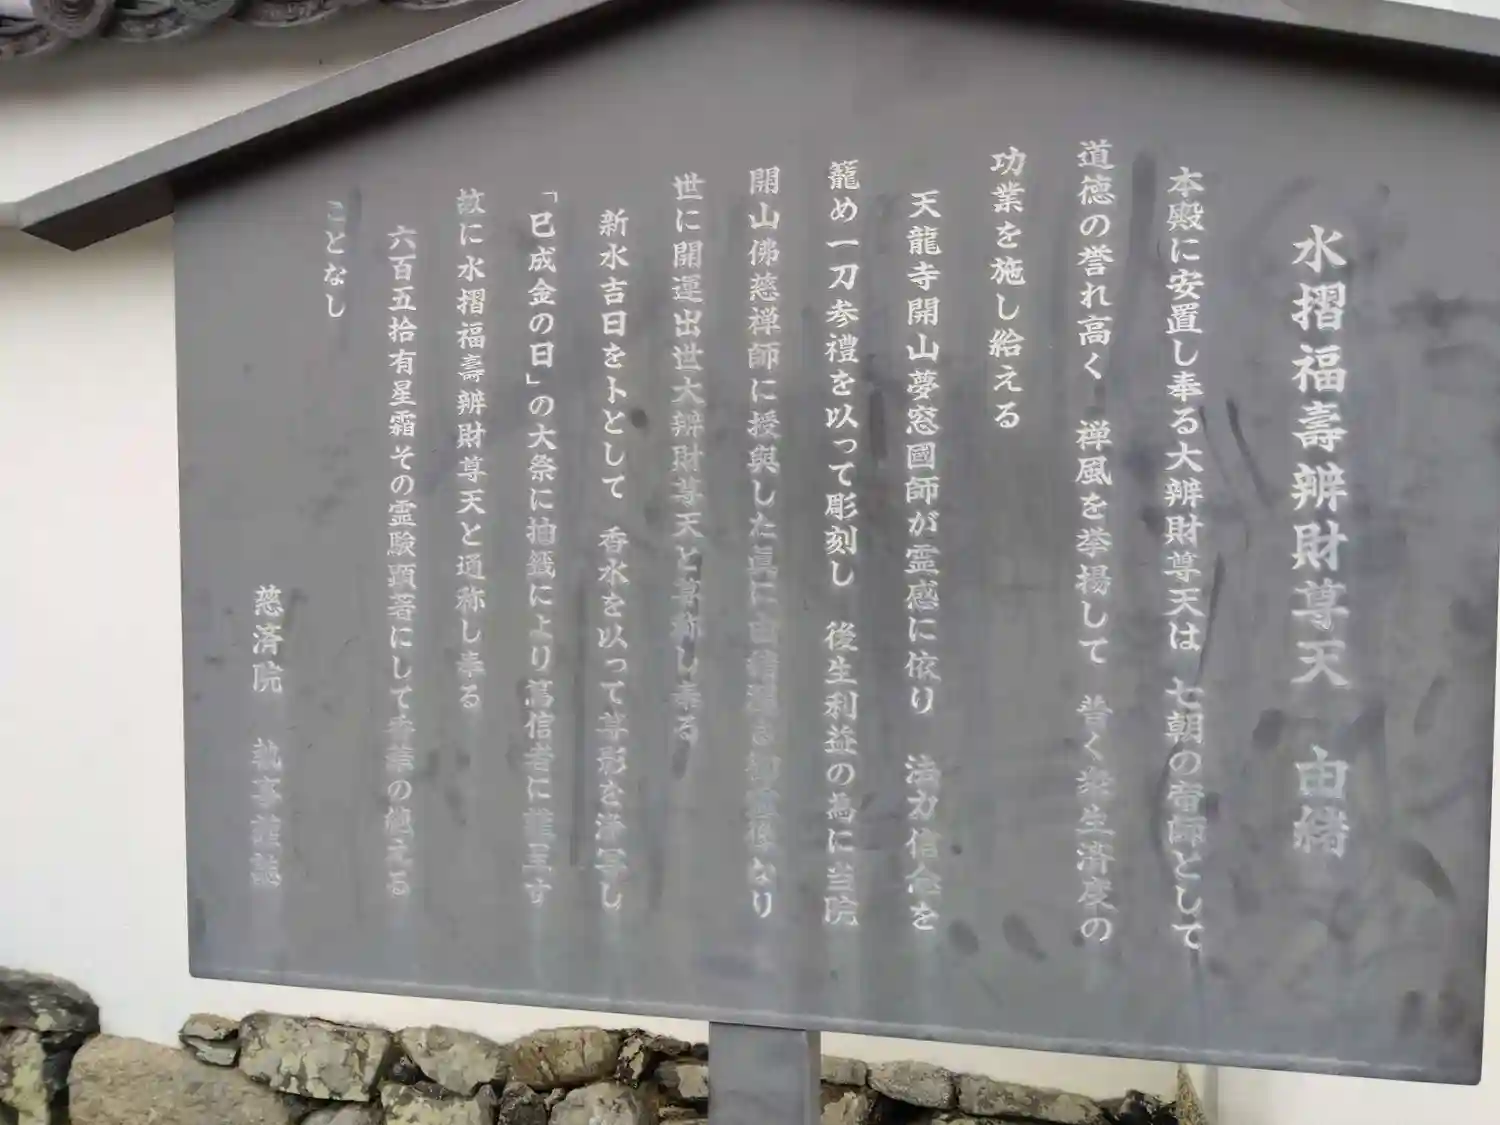 水摺福壽辨財尊天 由緒
本殿に安置し奉る大辨財尊天は 七朝の帝師として
道徳の誉れ高く 禅風を挙揚して 普く衆生済度の
功業を施し給える
天龍寺開山夢窓國師が霊感に依り 法力信念を
籠め一刀参禮を以って彫刻し 後生利益の為に当院
開山佛慈禅師に授與した眞に由緒深き御霊像なり
世に開運出世大辨財尊天と尊称し奉る
新水吉日をトとして 香水を以って尊形を浄写し
「巳成金の日」の大祭に抽籤により篤信者に謹呈す
故に水摺福壽辨財尊天と通称し奉る
六百五拾有星霜その霊験顕著にして香華の絶える
ことなし
慈済院 執事謹誌